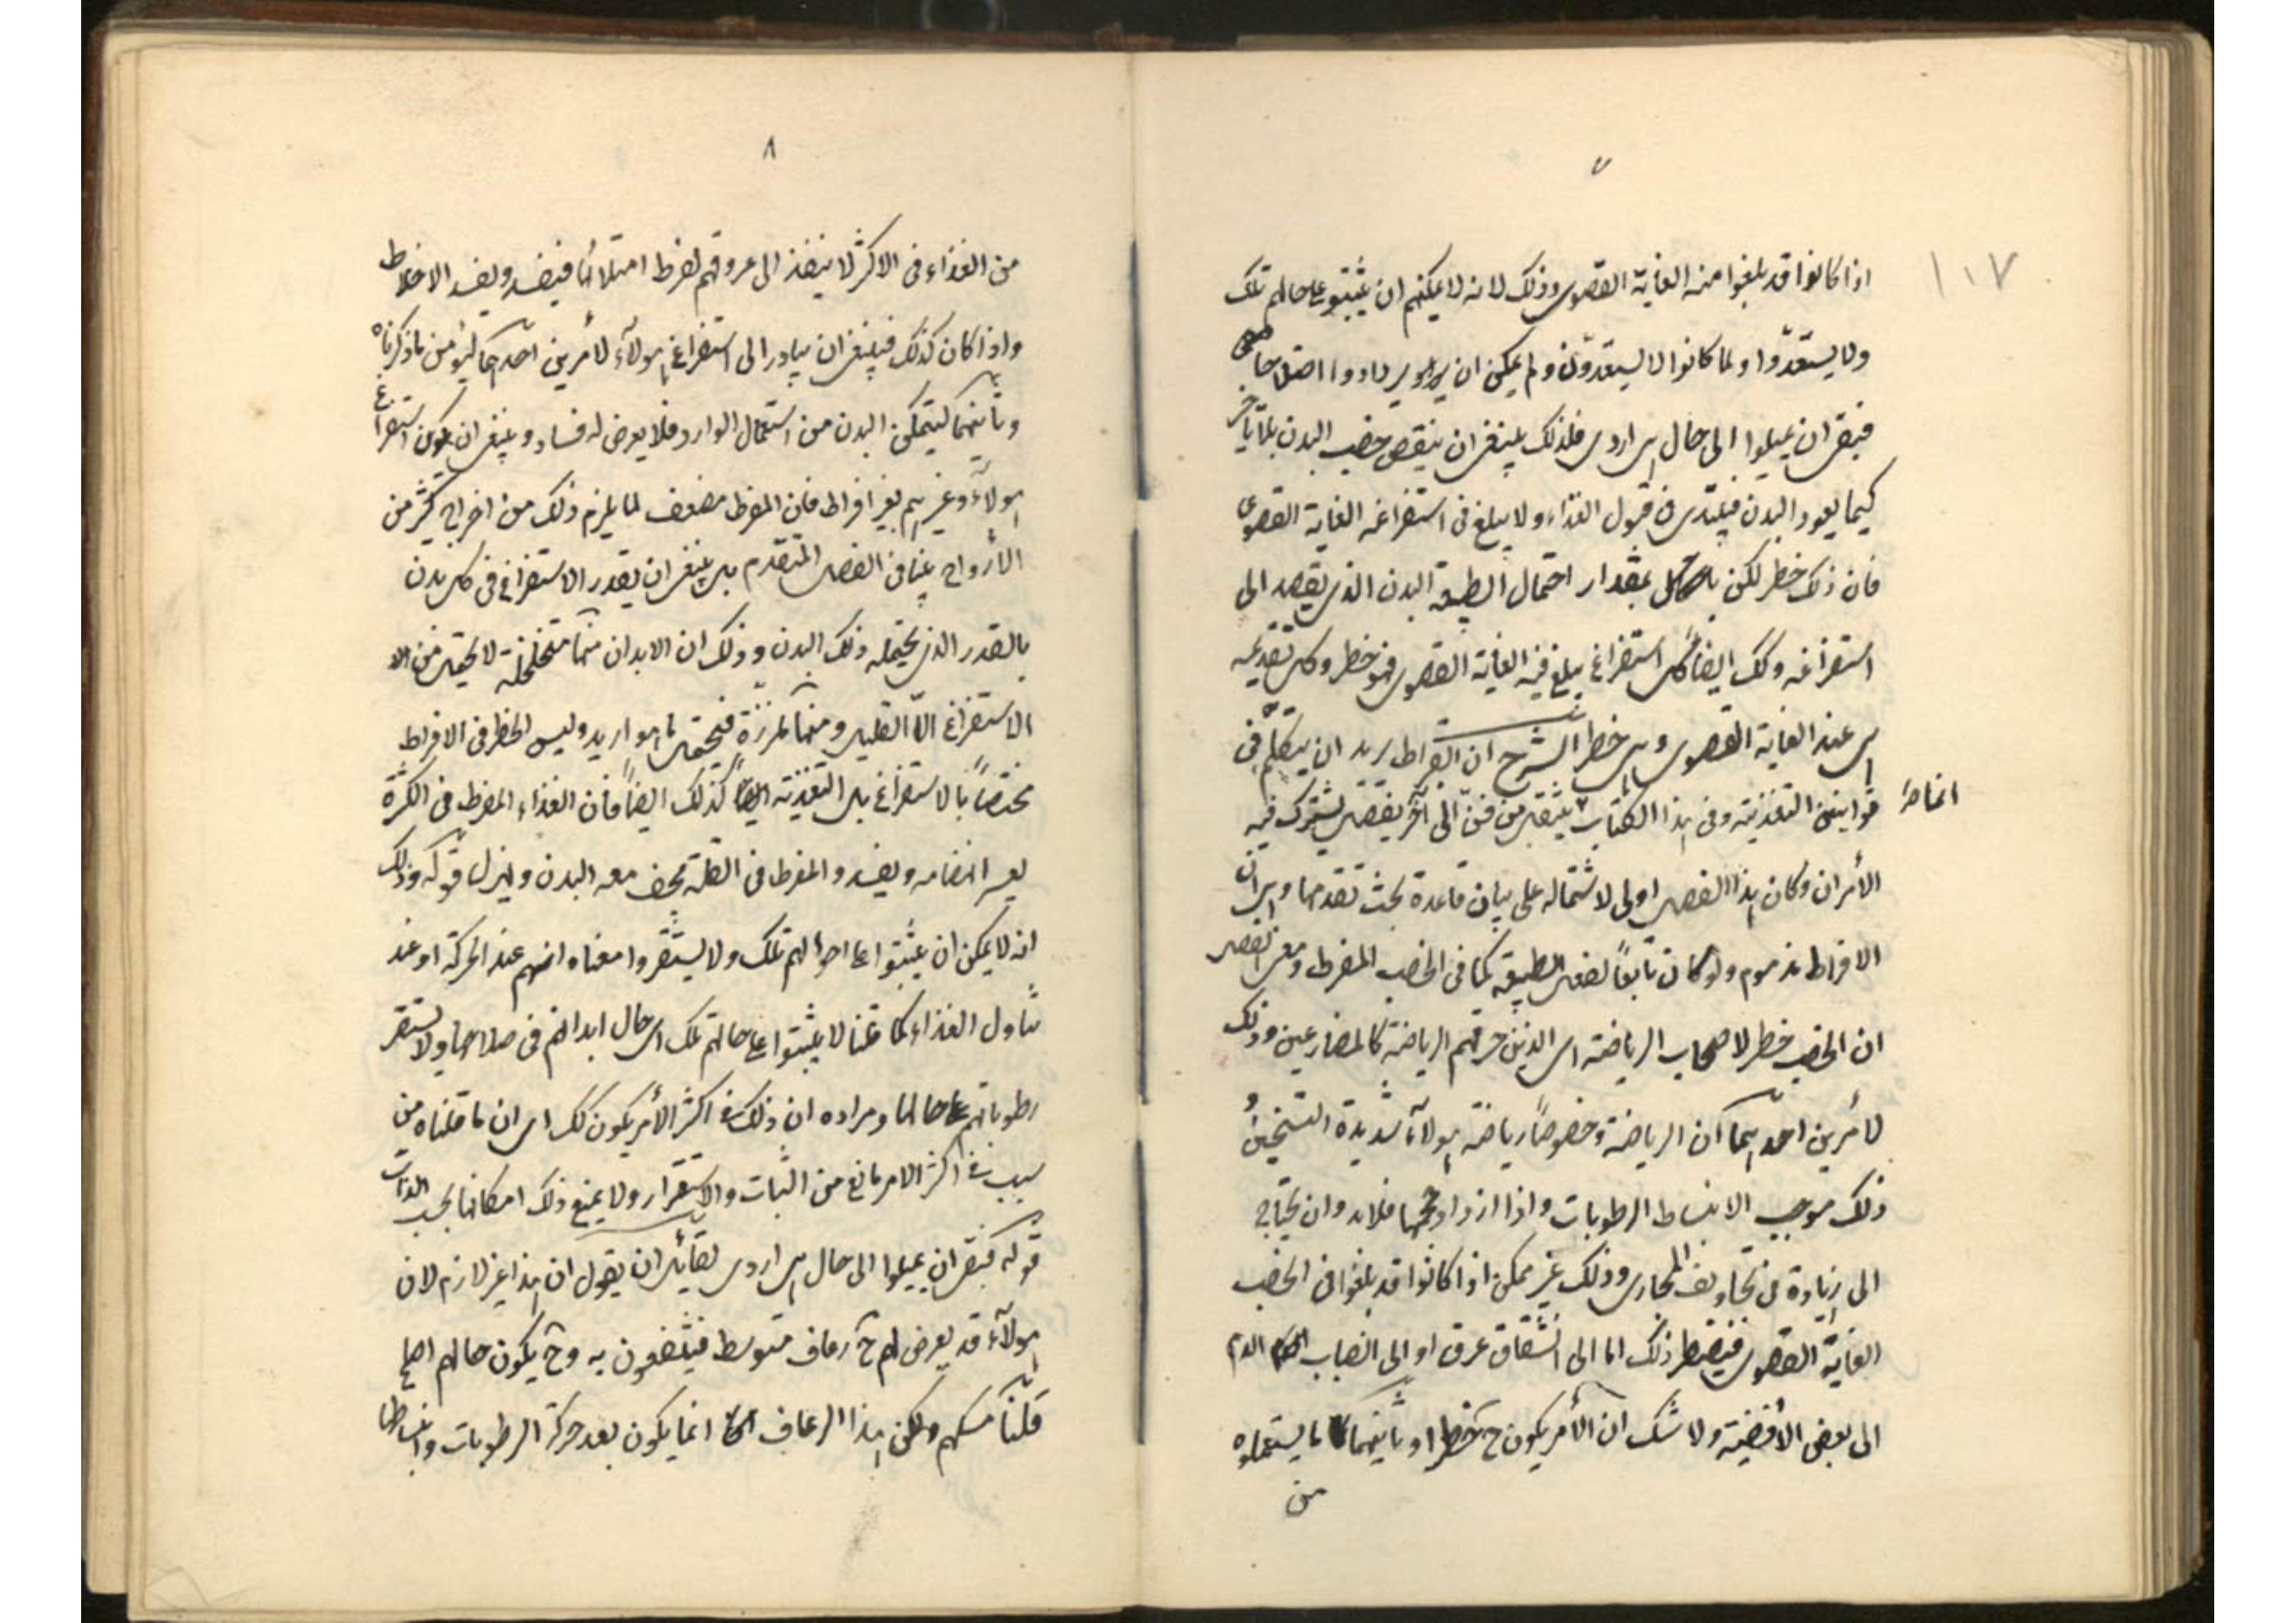 ٧
١٠٧
اذا كانوا قد بلغوا منه الغاية القصوى وذلك لانه لا يمكنهم ان يثبتوا على حالهم تلك
ولا يستقروا ولما كانوا لا يستقرون ولم يمكن ان يزدادوا اصلاحا
فبقى ان يميلوا الى حال هى اردى فلذلك ينبغى ان ينقص خصب البدن بلا تأخر
كيما يعود البدن فيبتدى فى قبول الغذاء ولا يبلغ فى استفراغه الغاية القصوى
فان ذلك خطر لكن بمقدار احتمال طبيعة البدن الذى يقصد الى
استفراغه وكك ايضا كل استفراغ يبلغ فيه الغاية القصوى فهو خطر وكل تغذية
هى عند الغاية القصوى فهى خطر الشرح ان ابقراط يريد ان يتكلم فى
قوانين التغذية وفى هذا الكتاب ينتقل من فن الى آخر بفصل يشترك فيه
الأمران وكان هذا الفصل اولى لاشتماله على بيان قاعدة بحث تقدمها وهى ان
الافراط مذموم ولو كان تابعاً لفعل الطبيعة كما فى الخصب المفرط ومعنى الفصل
ان الخصب خطر لاصحاب الرياضة اى الذين حرفتهم الرياضة كالمصارعين وذلك
لأمرين احدهما ان الرياضة وخصوصاً رياضة هولآء شديدة التسخين و
ذلك موجب لانبساط الرطوبات واذا ازداد حجمها فلابد وان يحتاج
الى زيادة فى تجاويف المجارى وذلك غير ممكن اذا كانوا قد بلغوا فى الخصب
الغاية القصوى فيضطر ذلك اما الى انشقاق عرق او الى انصباب الدم
الى بعض الأفضية ولا شك ان الأمر يكون ح خطرا وثانيهما ما يستعملوه
من
٨
من الغذاء فى الاكثر لا ينفذ الى عروقهم لفرط امتلائها فيفسد ويفسد الاخلاط
واذا كان كذلك فينبغى ان يبادر الى استفراغ هولآء لأمرين احدهما ليؤمن ما ذكرناه
وثانيهما ليتمكن البدن من استعمال الوارد فلا يعرض له فساد وينبغى ان يكون استفراغ
هولآء وغيرهم بغير افراط فان المفرط مضعف لما يلزم ذلك من اخراج كثير من
الأرواح بينا فى الفصل المتقدم بل ينبغى ان يقدر الاستفراغ فى كل بدن
بالقدر الذى يحتمله ذلك البدن وذلك ان الابدان منها متخلخلة لا يحتمل من
الاستفراغ الّا القليل ومنها مكززة فيحتمل ما هو ازيد وليس الخطر فى الافراط
مختصاً بالاستفراغ بل التغذية كذلك ايضاً فان الغذاء المفرط فى الكثرة
يعسر انهضامه ويفسد والمفرط فى القلة يجف معه البدن ويهزل قوله وذلك
انه لا يمكن ان يثبتوا على احوالهم تلك ولا يستقروا معناه انهم عند الحركة او عند
تناول الغذاء كما قلنا لا يثبتوا على حالتهم تلك اى حال ابدانهم فى صلاحها ولا تستقر
رطوباتهم على حالها ومراده ان ذلك فى اكثر الأمر يكون كك اى ان ما قلناه من
سبب فى اكثر الامر مانع من الثبات والاستقرار ولا يمنع ذلك امكانها بحسب الذات
قوله فبقى ان يميلوا الى حال هى اردى لقائل ان يقول ان هذا غير لازم لان
هولآء قد يعرض لهم ح رعاف متوسط فينتفعون به وح يكون حالهم اصلح
قلنا مسلم ولكن هذا الرعاف انما يكون بعد حركة الرطوبات وانبساطها